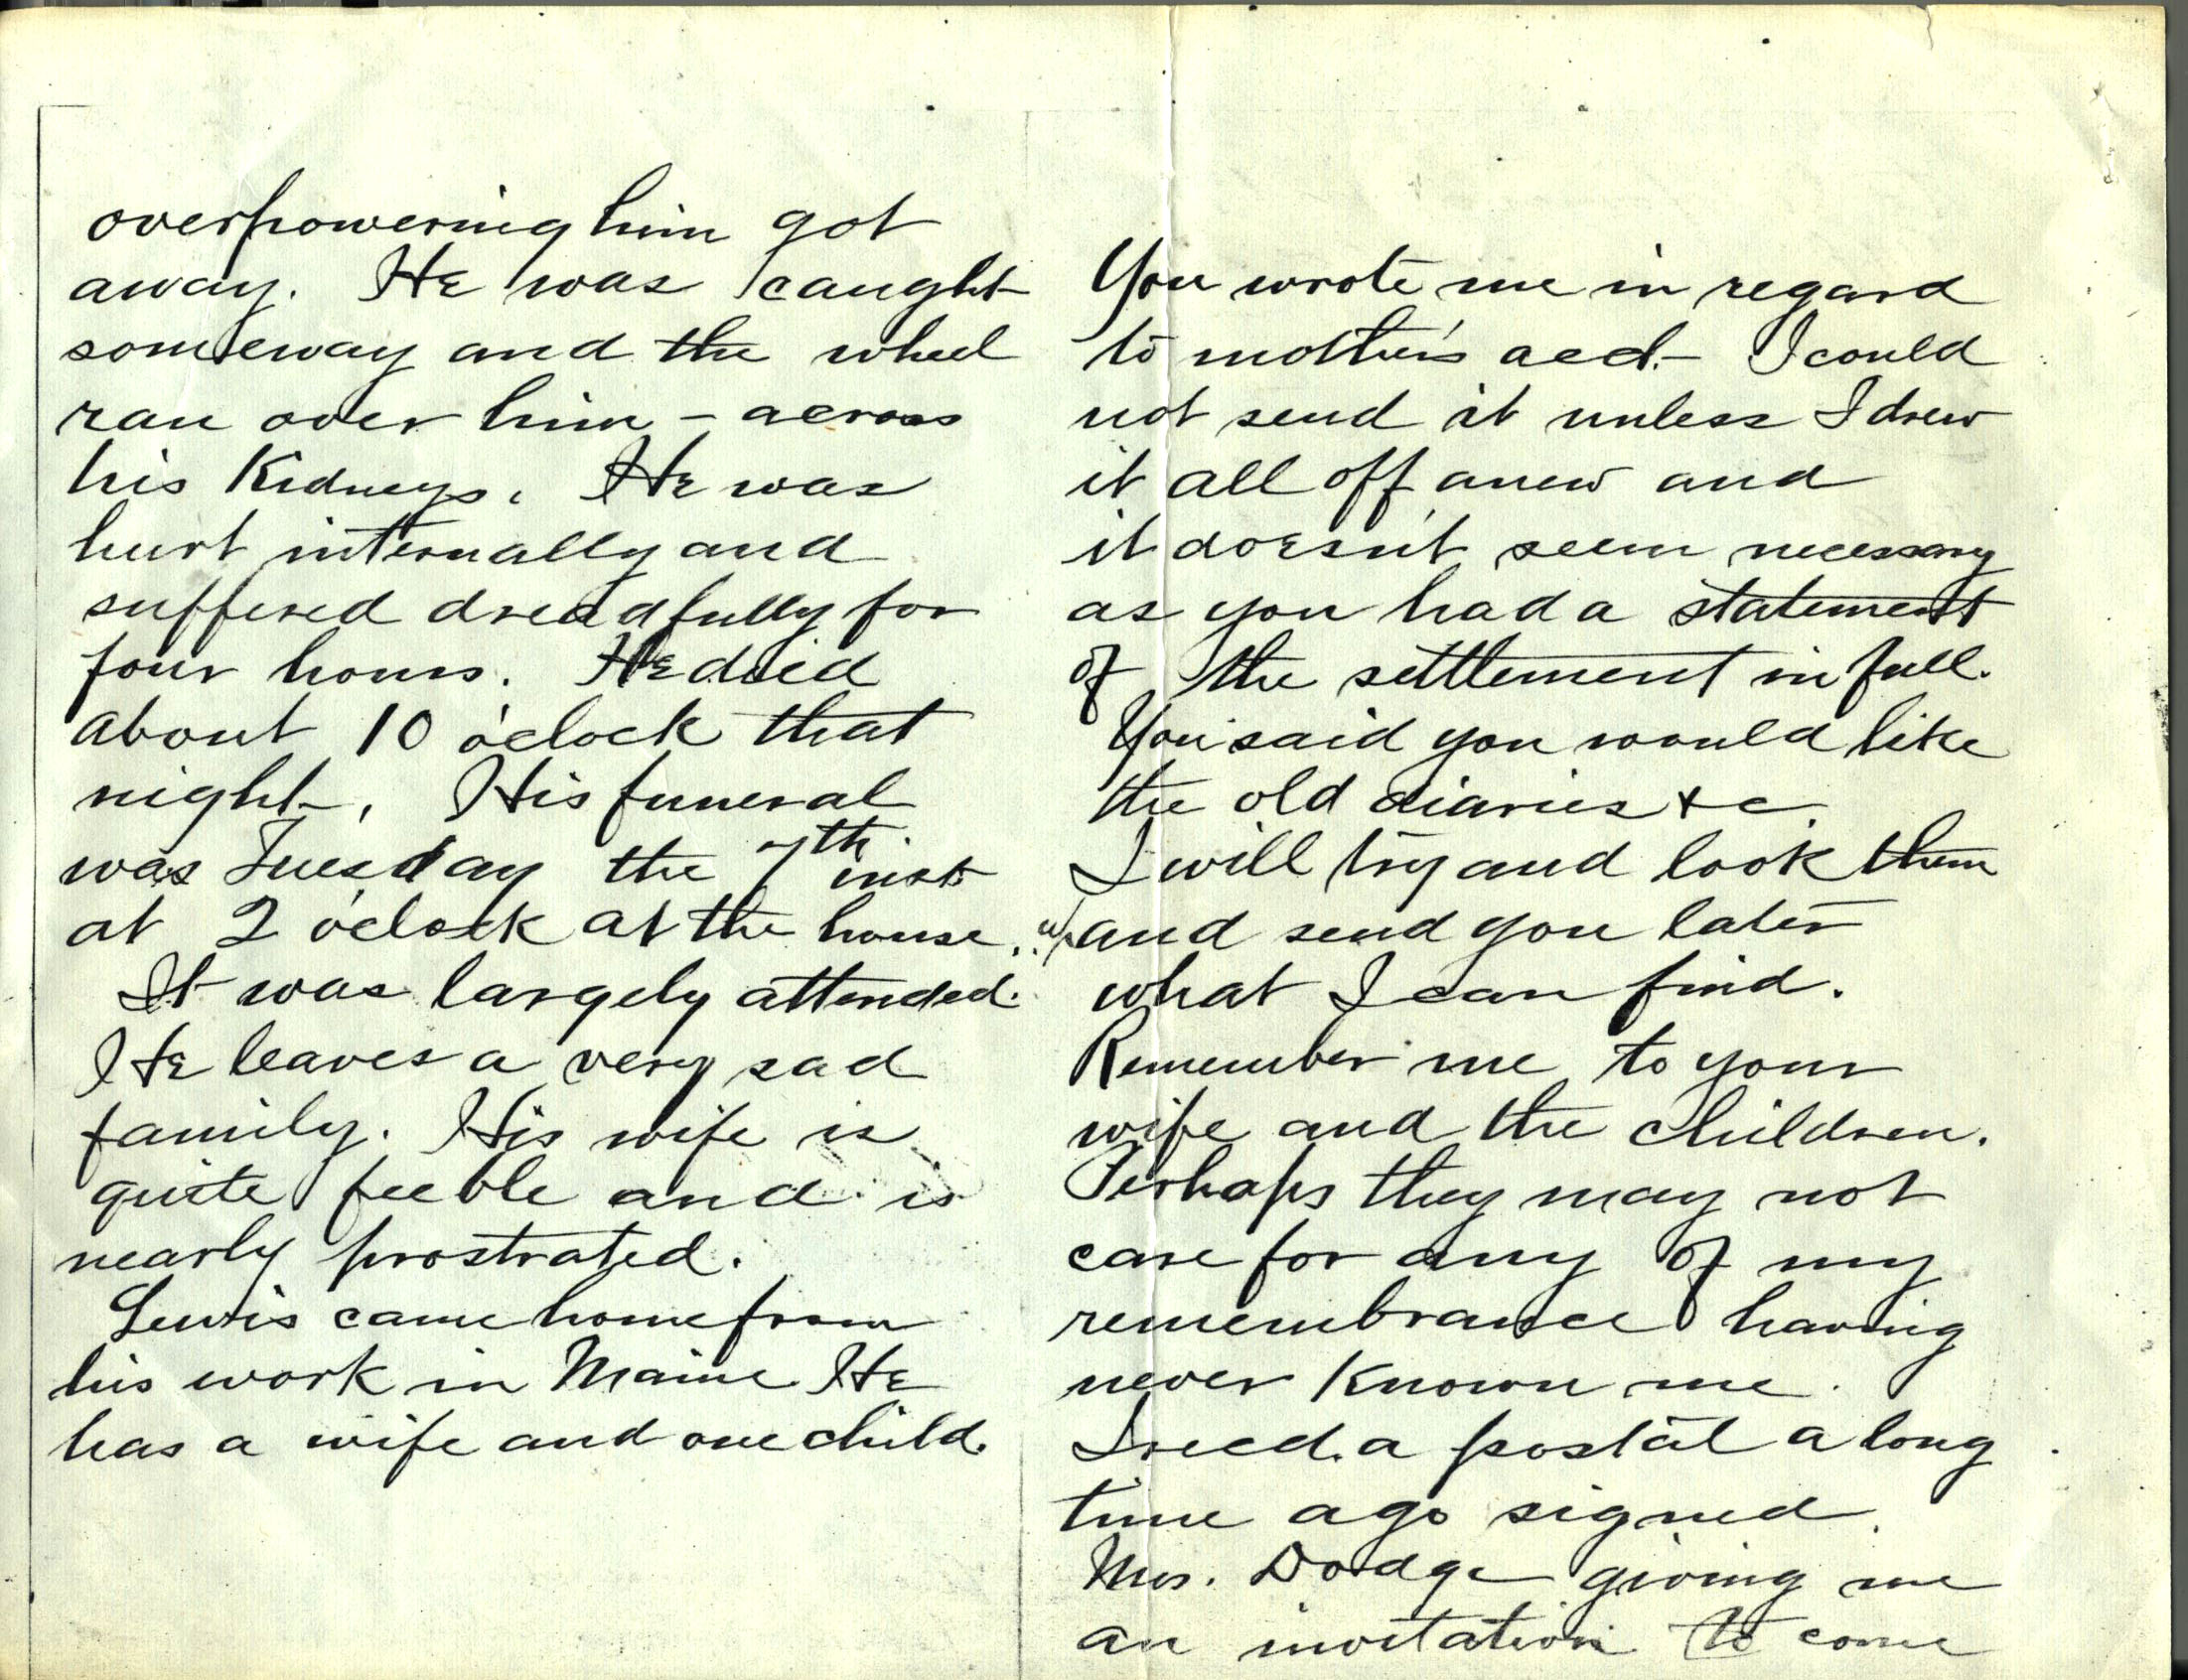 overpowering him got
away. He was caught
someway and the wheel
ran over him – across
his Kidneys. He was
hurt internally and
suffered dreadfully for
four hours. He died
about 10 o'clock that
night. His funeral
was Tuesday the 7th inst
at 2 o'clock at the house.
It was largely attended.
He leaves a very sad
family. His wife is
quite feeble and is
nearly prostrated.
Lewis came home from
his work in Maine He
has a wife and one child.
You wrote me in regard
to mother's acct.– I could
not send it unless I drew
it all off anew and
it doesn't seem necessary
as you had a statement
of the settlement in full.
You said you would like
the old diaries &c.
I will try and look them
up and send you later
what I can find.
Remember me to your
wife and the children.
Perhaps they may not
care for any of my
remembrance having
never Known me.
I recd. a postal a long
time ago signed
Mrs. Dodge giving me
an invitation to come